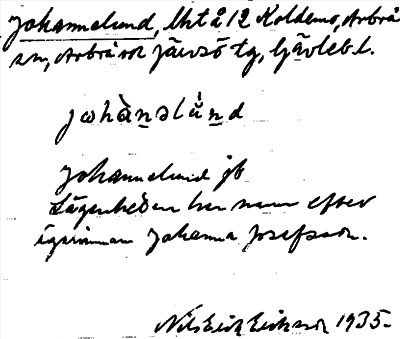 Johannelund, lht å 12 Koldemo, Arbrå
sn, Arbrå ock Järvsö tg, Gävleb.l.
johànəlúnd
Johannelund jb
Lägenheten har namn efter
ägarinnan Johanna Josefsson.
Nils Erik Eriksson 1935.